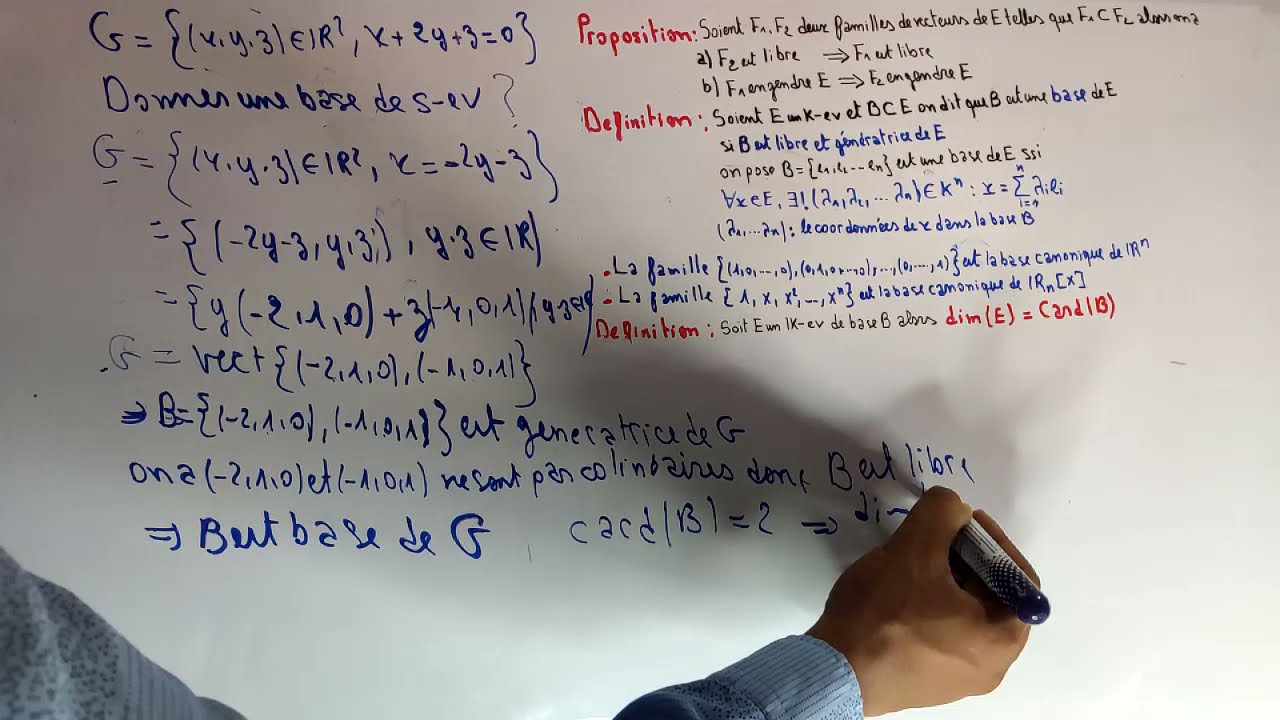 G = {(x,y,z) ∈ IR², x + 2y + z = 0}
Donner une base de s-ev ?
G = {(x,y,z) ∈ IR², x = -2y - z}
= {(-2y-z, y, z), y,z ∈ IR}
= {y(-2,1,0) + z(-1,0,1) / y,z ∈ IR}
G = vect{(-2,1,0), (-1,0,1)}
⇒ B = {(-2,1,0), (-1,0,1)} est generatrice de G
on a (-2,1,0) et (-1,0,1) ne sont pas colineaires donc B est libre
⇒ B est base de G card(B) = 2 ⇒ dim
Proposition: Soient F1, F2 deux familles de vecteurs de E telles que F1 ⊂ F2 alors on a
a) F2 est libre ⇒ F1 est libre
b) F1 engendre E ⇒ F2 engendre E
Definition: Soient E un K-ev et B ⊂ E on dit que B est une base de E
si B est libre et génératrice de E
on pose B = {e1, e2 ... en} est une base de E ssi
∀x ∈ E, ∃! (λ1, λ2, ... λn) ∈ Kⁿ : x = Σ_{i=1}^{n} λi ei
(λ1, ... λn) : le coordonnées de x dans la base B
. La famille {(1,0,...,0), (0,1,0,...,0), ..., (0,...,1)} est la base canonique de IRⁿ
. La famille {1, x, x², ..., xⁿ} est la base canonique de IRn[x]
Definition : Soit E un IK-ev de base B alors dim(E) = Card(B)